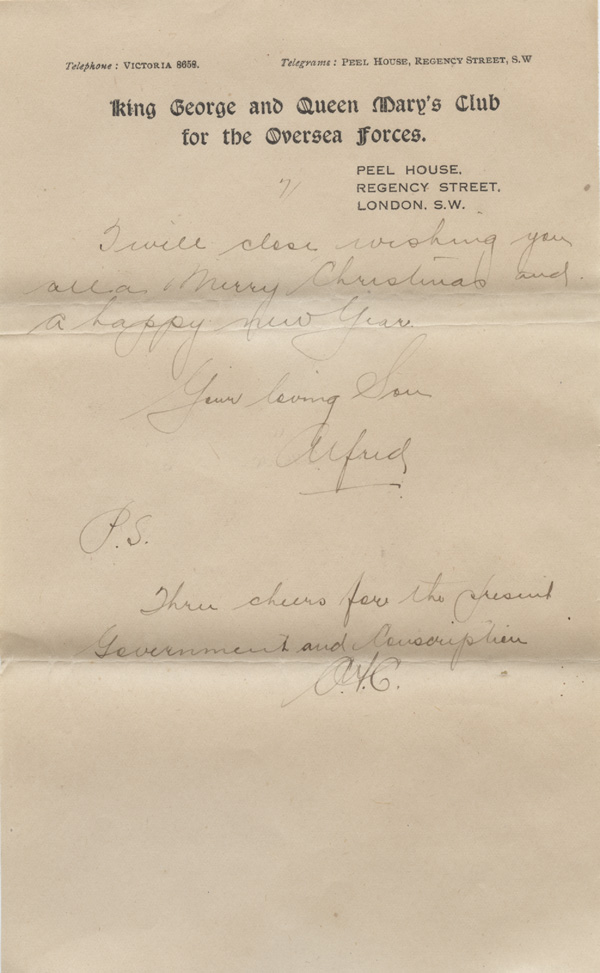 Telephone: VICTORIA 8658.
Telegrams: PEEL HOUSE, REGENCY STREET, S.W
King George and Queen Mary's Club
for the Oversea Forces.
PEEL HOUSE,
REGENCY STREET,
LONDON, S.W.
I will close wishing you
all a Merry Christmas and
a happy new Year
Your loving Son
Alfred
P.S.
Three cheers for the present
Government and Conscription